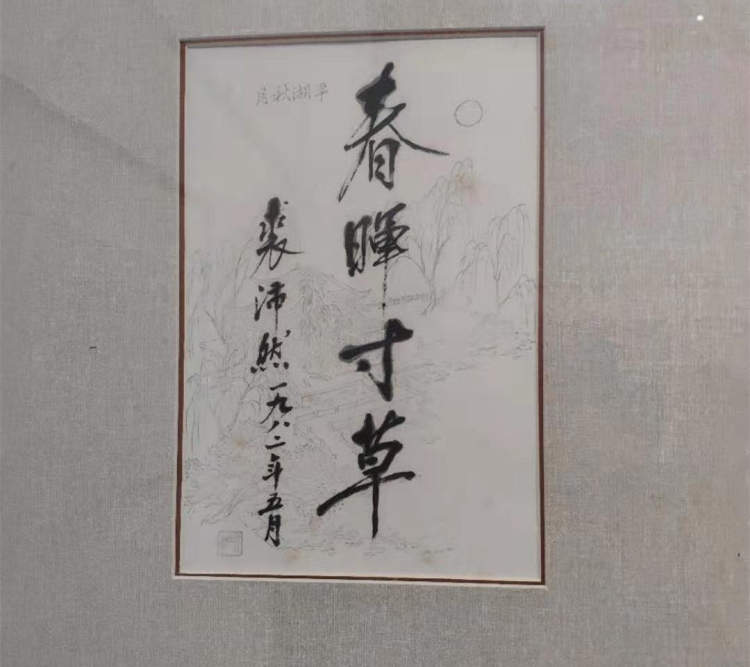 春暉寸草
裘沛然一九八二年五月
平湖秋月